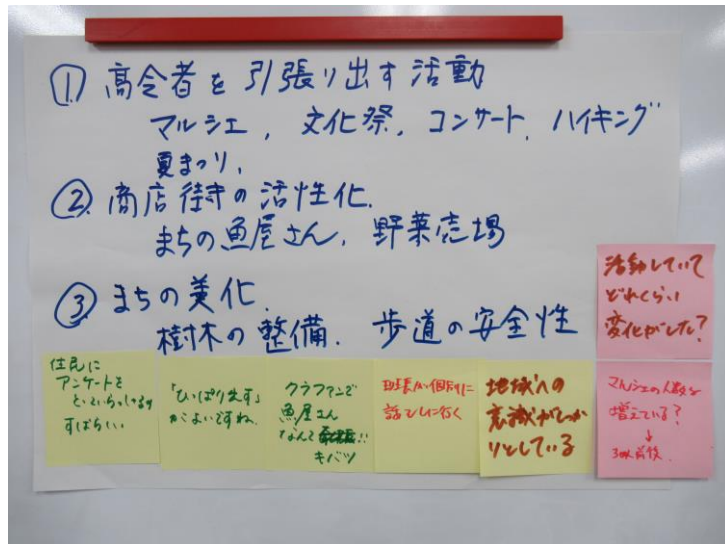 ① 高令者を引張り出す活動
マルシェ, 文化祭, コンサート, ハイキング
夏まつり,
② 商店街の活性化.
まちの魚屋さん, 野菜売場
③ まちの美化.
樹木の整備. 歩道の安全性
活動していて
どれくらい
変化がした?
住民に
アンケートを
すばらしい.
「ひっぱり出す」
がよいですね.
クラファンで
魚屋さん
なんて
キバツ
班長が個別に
話をしに行く
地域への
意識がしっか
りとしている
マルシェの人数は
増えている?
↓
前後.